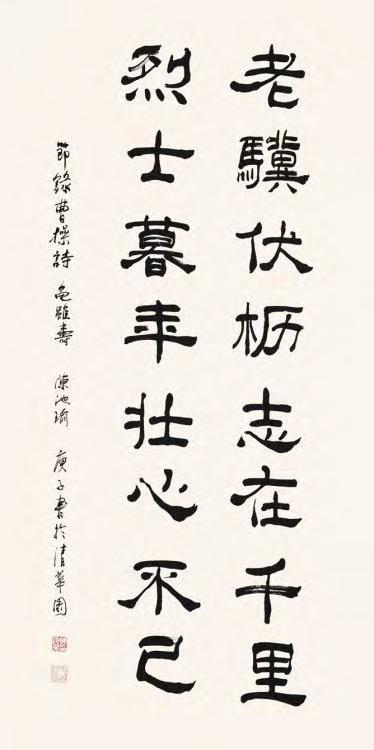 老驥伏枥志在千里
烈士暮年壮心不已
節錄曹操詩 龟雖壽 陳池瑜 庚子書於清華園